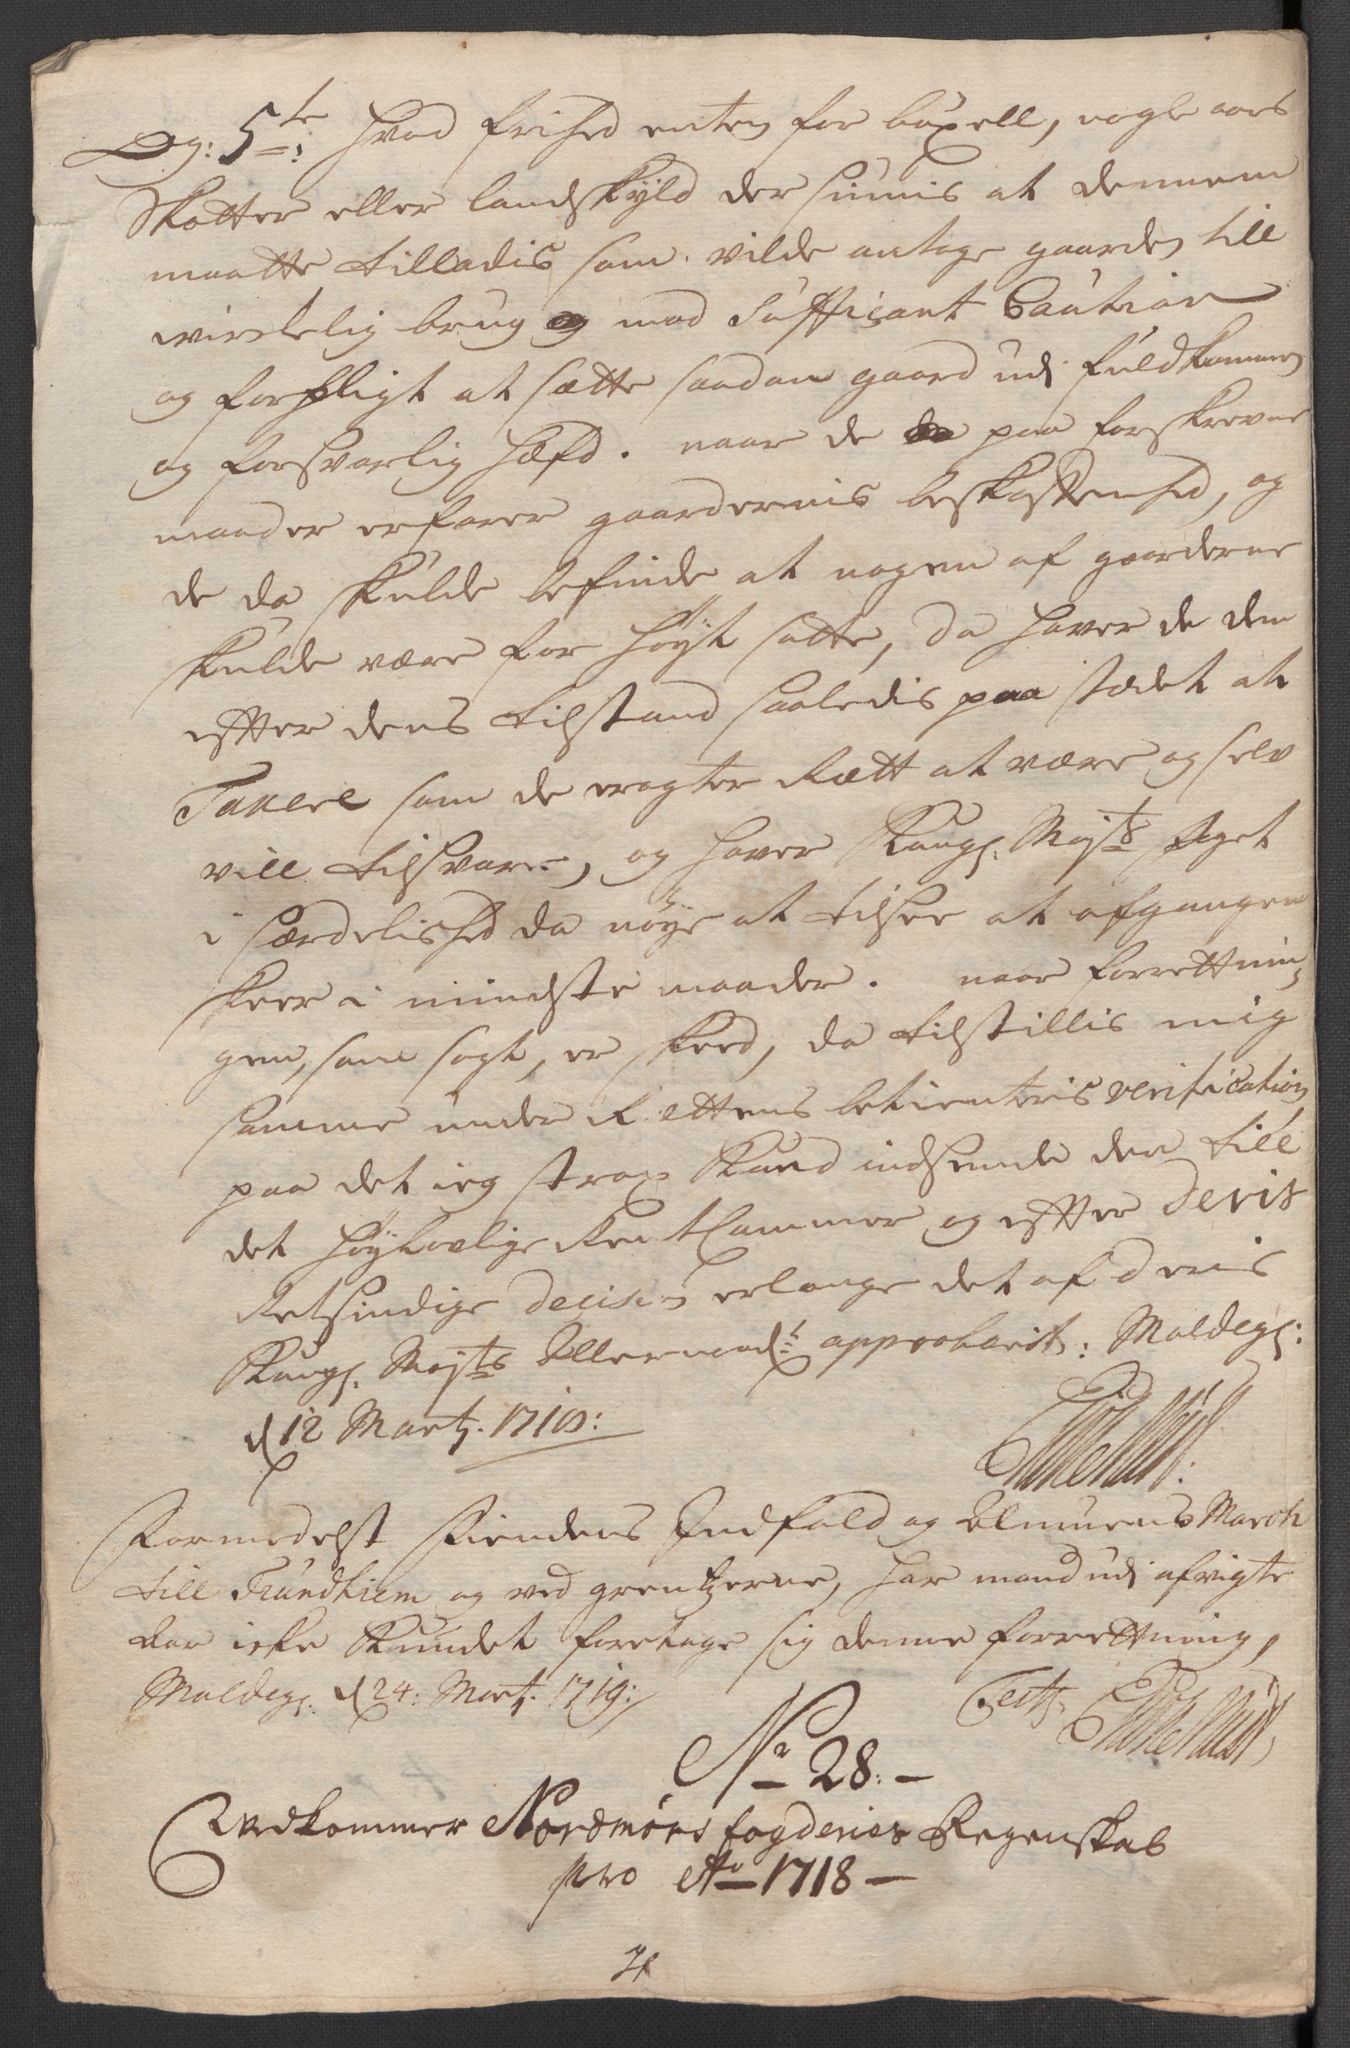 Og: 5te: hvad frihed enten for büxell, nogle aars
Skatter eller landskyld der siunis at dennem
maatte tilladis som vilde antage gaarden till
wirckelig brug og mod Sufficant Caution
og forpligt at sætte saadan gaard udj fuldkommen
og forsvarlig hæfd. naar de da paa forskrevne
maader erfarer gaardernis beskaffenhed, og
de da skulde befinde at nogen af gaarderne
skulde være for høyt satte, da haver de dem
effter dens tilstand saaledis paa stædet at
Taxere som de eragter Rætt at være og selv
vill tilsvare, og haver Kongl. Mayts foget
i særdelished da nøye at tilsee at afgangen
skeer i mindste maader. naar forrettnin¬
gen, som sagt, er skeed, da tilstillis mig
samme under Rettens betienteris verification
paa det ieg strax kand indsende den till
det høylovlige Rentcammer og effter deris
Retsindige decision erlange det af deris
Kongl. Mayts Allernaadt approberit: Moldegl:
d 12 Martz. 1718:
Formedelst Fiendens Indfald og Armeens March
till Trundhiem og ved grentzerne, har mand udj afvigte
aar icke kundet foretage sig denne forrettning,
Moldegl. d 24: Mart. 1719:
No 28:
Vedkommer Nordmørs fogderies Regenskab
pro Ao 1718